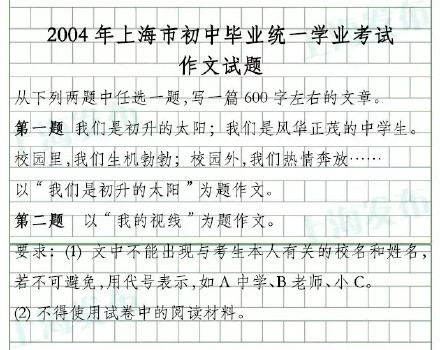 2004 年上海市初中毕业统一学业考试
作文试题
从下列两题中任选一题,写一篇 600 字左右的文章。
第一题 我们是初升的太阳；我们是风华正茂的中学生。
校园里,我们生机勃勃；校园外,我们热情奔放……
以“我们是初升的太阳”为题作文。
第二题 以“我的视线”为题作文。
要求：(1) 文中不能出现与考生本人有关的校名和姓名，
若不可避免,用代号表示,如 A 中学、B 老师、小 C。
(2) 不得使用试卷中的阅读材料。
上海发布